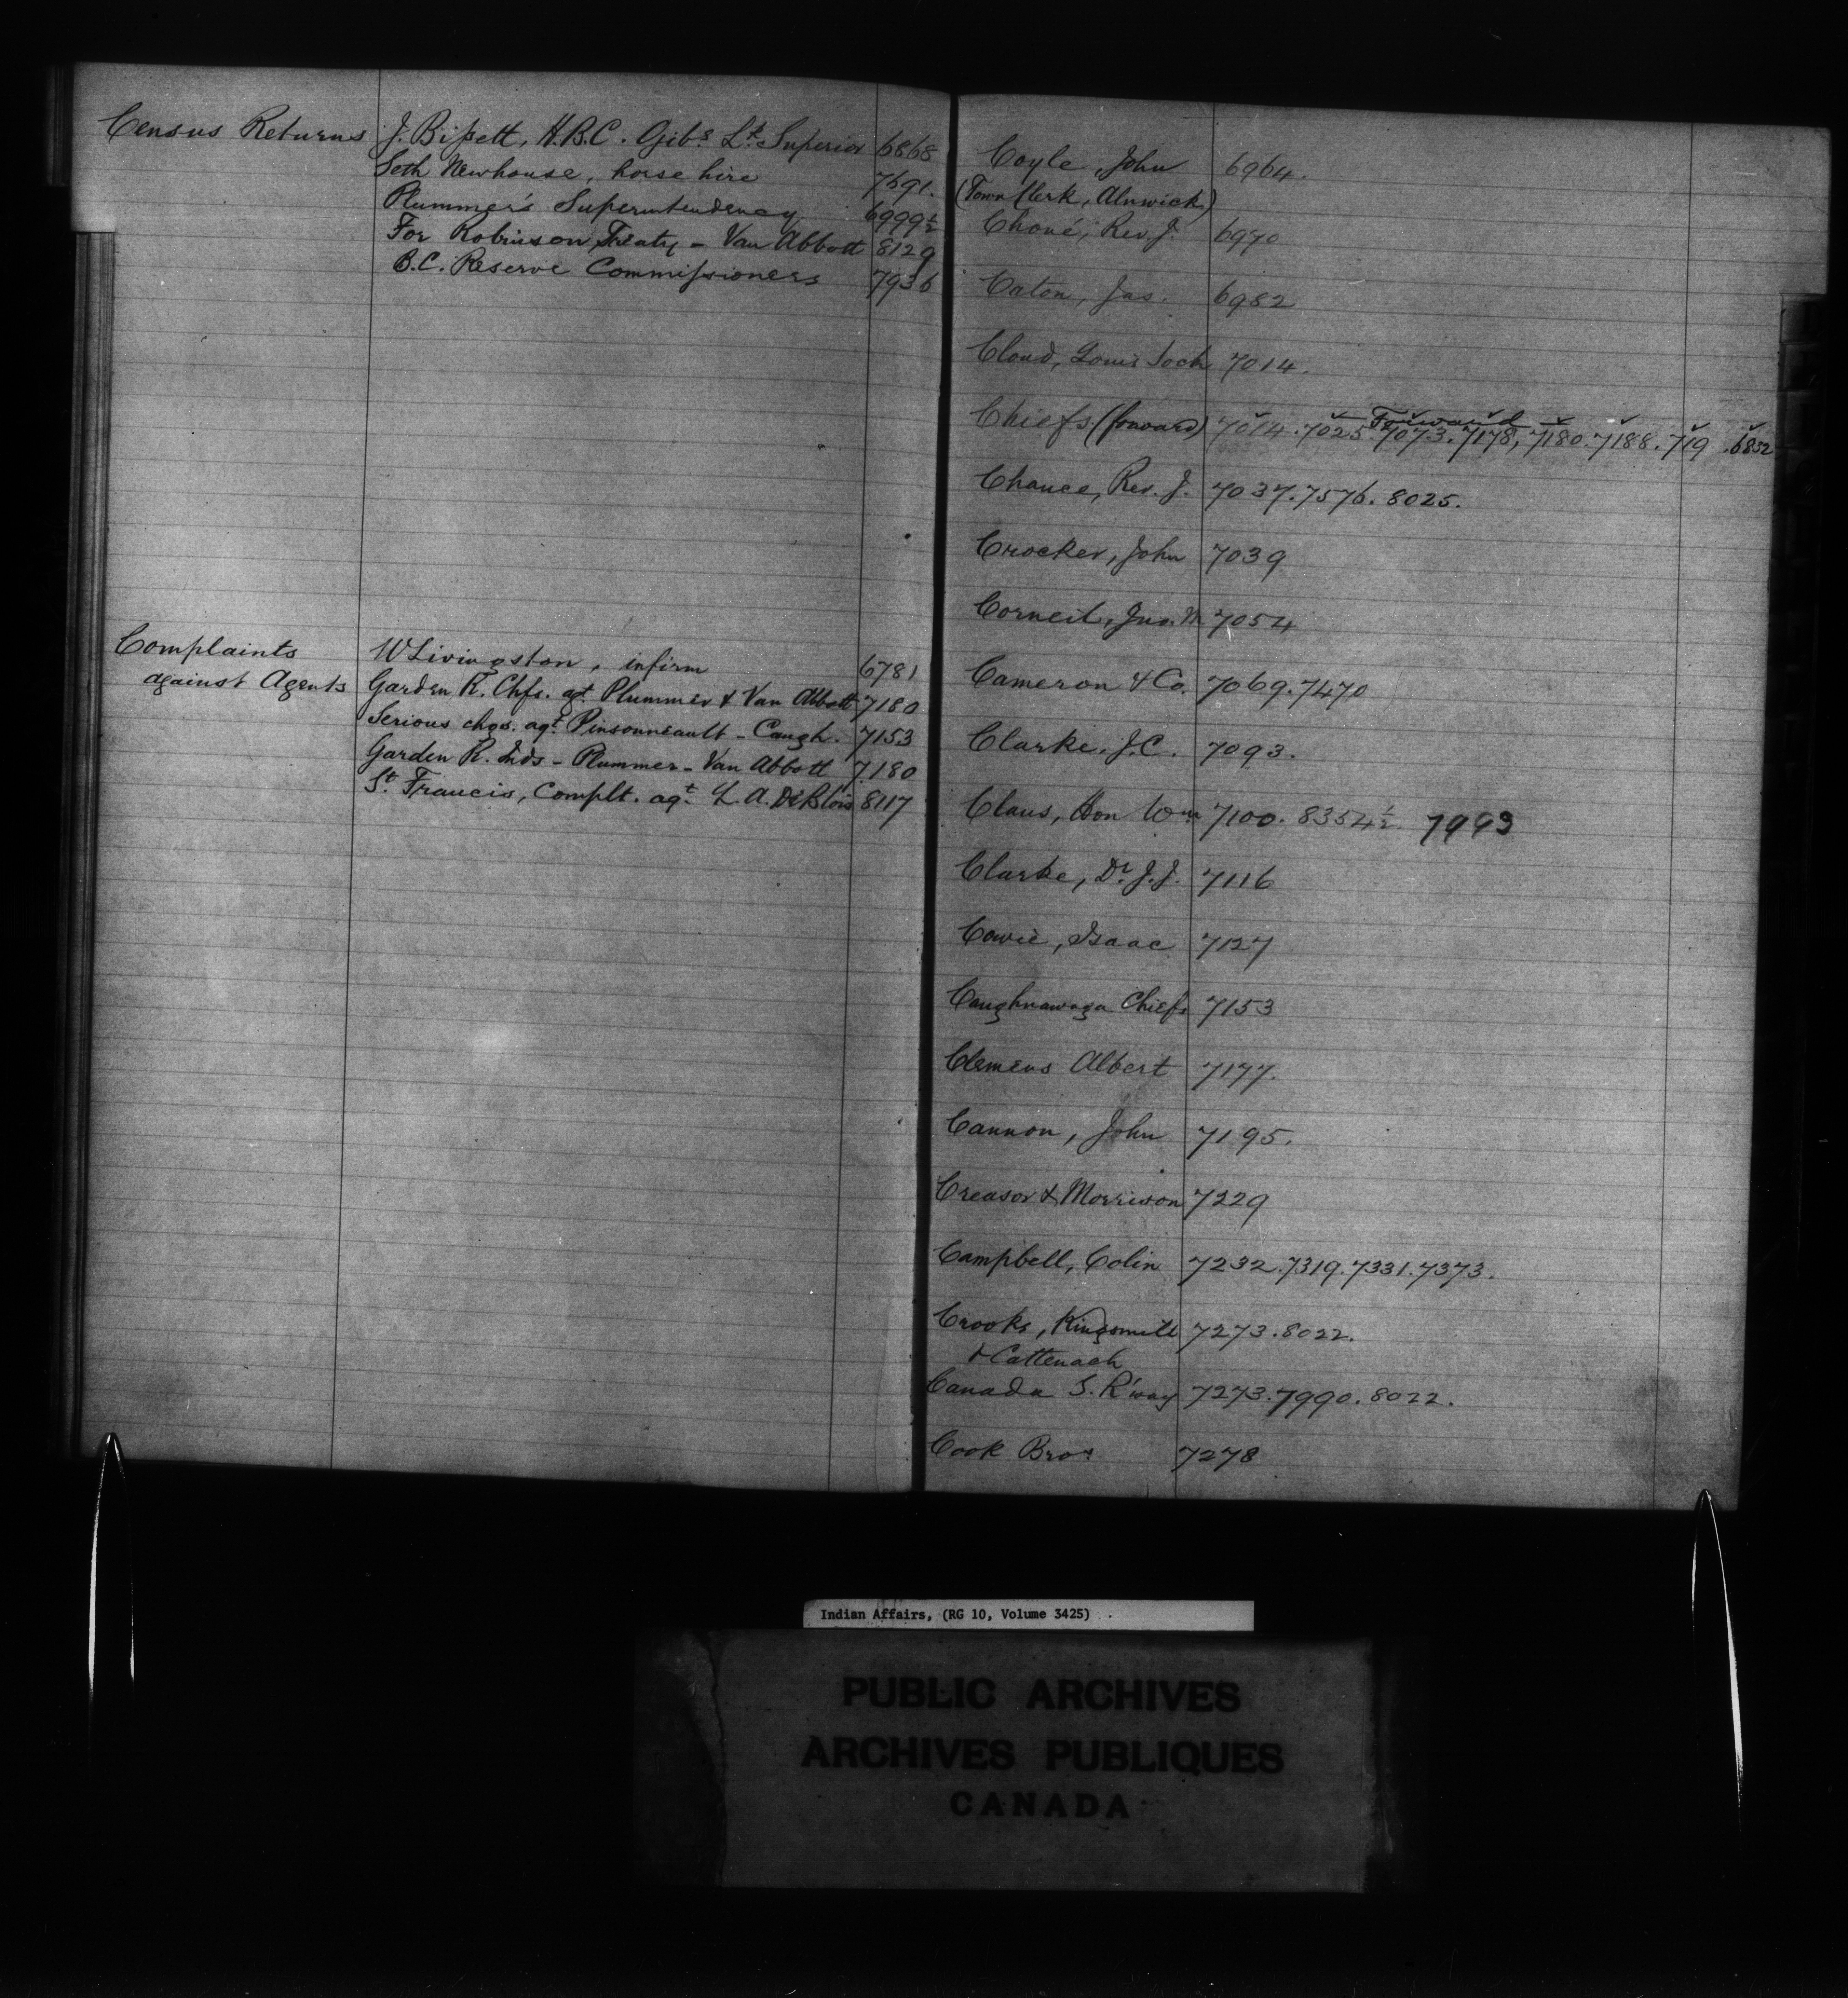 Census Returns J. Bissett, H.B.C. Gibs. Lt. Superior 6868
Seth Newhouse, horse hire 7691.
Plummer's Superintendency 6999½
For Robinson Treaty - Van Abbott 8129
B.C. Reserve Commissioners 7936
Complaints W Livingston, infirm 6781
against Agents Garden R. Chfs. agt Plummer & Van Abbott 7180
Serious chgs. agt. Pinsonneault - Caugh. 7153
Garden R. Inds - Plummer - Van Abbott 7180
St. Francis, Complt. agt. L. A. DeBlois 8117
Coyle, John 6964.
(Town Clerk, Alnwick)
Choné, Rev. J. 6970
Caton, Jas. 6982
Cloud, Louis 7014.
Forward
Chiefs (forward) 7014. 7025. 7073. 7178, 7180. 7188. 719 . 6852
Chance, Rev. J. 7037. 7576. 8025.
Crocker, John 7039
Corneil, Jno. 7054
Cameron & Co. 7069. 7470
Clarke, J.C. 7093.
Claus, Hon Wm 7100. 8354½ 7993
Clarke, Dr. J.J. 7116
Cowie, Isaac 7127
Caughnawaga Chiefs 7153
Clemens Albert 7177.
Cannon, John 7195.
Creasor & Morrison 7229
Campbell, Colin 7232. 7319. 7331. 7373.
Crooks, Kingsmill 7273. 8022.
& Cattenach
Canada S. R'way 7273. 7990. 8022.
Cook Bros 7278
Indian Affairs, (RG 10, Volume 3425)
PUBLIC ARCHIVES
ARCHIVES PUBLIQUES
CANADA